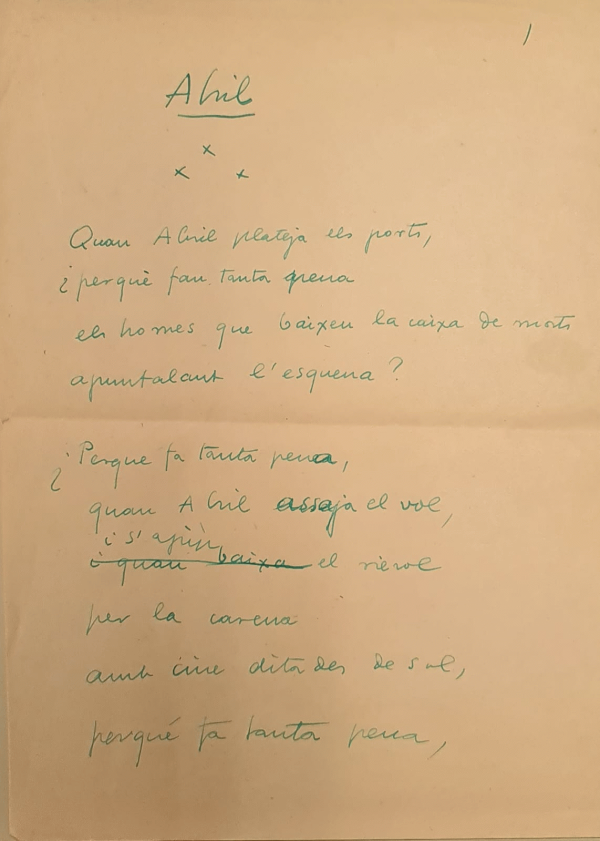 1
Abril
x
x x
Quan Abril plateja els ports,
¿perquè fan tanta pena
els homes que baixen la caixa de morts
apuntalant l'esquena?
¿Perque fa tanta pena,
quan Abril assaja el vol,
i s'
i quan baixa el rierol
per la carena
amb cinc ditades de sol,
perqué fa tanta pena,